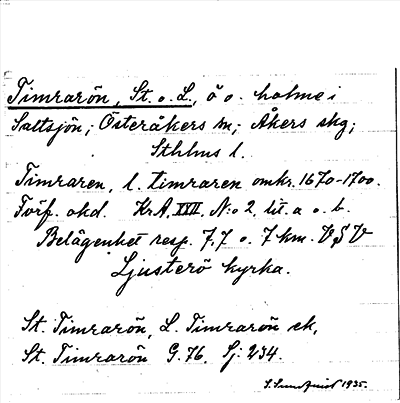 Timrarön, St. o. L., ö o. holme i
Saltsjön; Österåkers sn; Åkers skg;
Sthlms l.
Timraren, l. timraren omkr. 1670-1700.
Förf. okd. KrA. XXII, N:o 2, lit. a o. b.
Belägenhet resp. 7,7 o. 7 km. VSV
Ljusterö kyrka.
St. Timrarön, L. Timrarön ek,
St. Timrarön G. 76, Sj: 234.
S. Sundquist 1935.